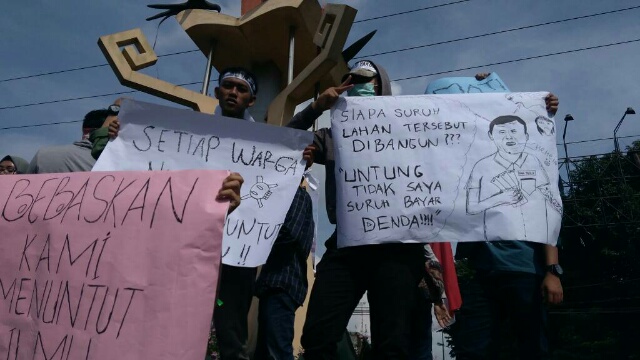 GEBASKAN
KAMI
MENUNTUT
ILMU
SETIAP WARGA
SIAPA SURUH
LAHAN TERSEBUT
DIBANGUN ???
"UNTUNG
TIDAK SAYA
SURUH BAYAR
DENDA!!!!"